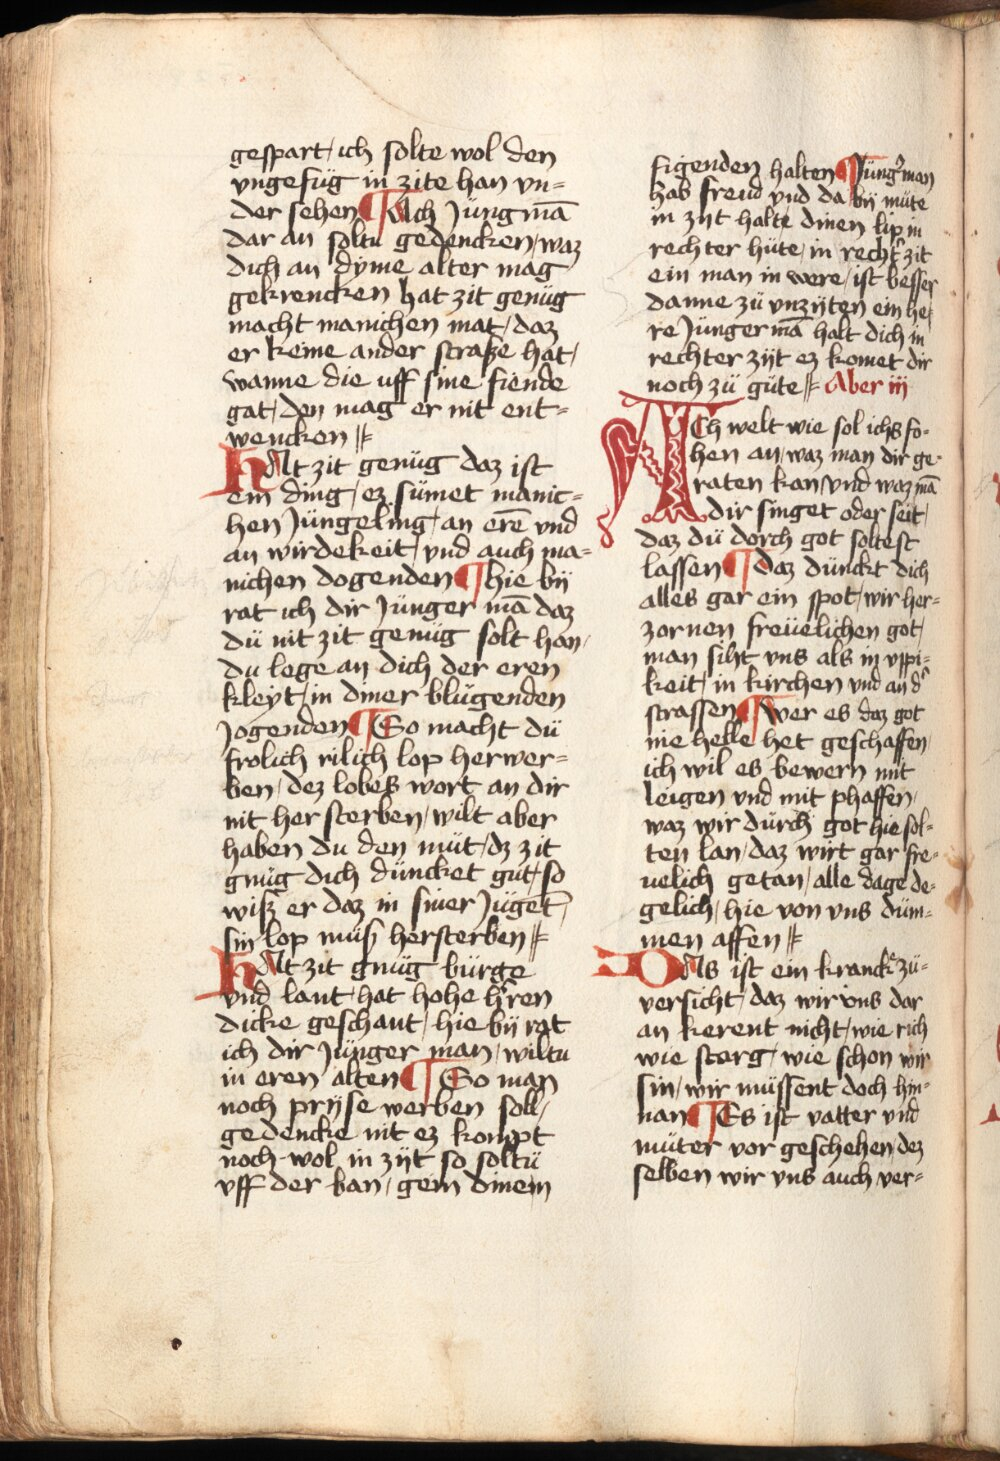 gespart / ich solte wol den
vngefüg in zite han vn=
der sehen ¶ Ach Jüng mā
dar an soltu gedencken / waz
dich an dyme alter mag
gekrencken hat zit genüg
macht manichen mat / daz
er keine ander straße hat /
wanne die uff sine fiende
gat / den mag er nit ent=
wencken //
HAt zit genüg daz ist
ein ding / ez sümet manic=
hen Jüngeling / an erē vnd
an wirdekeit / vnd auch ma=
nichen dogenden ¶ hie bÿ
rat ich dir Jünger mā daz
dü nit zit genüg solt han /
du lege an dich der eren
kleyt / in diner blügenden
jogenden ¶ So macht dü
frolich rilich lop herwer=
ben / dez lobes wort an dir
nit her sterben / wilt aber
haben du den müt / dz zit
gnüg dich düncket güt / so
wiß er daz in siner Jüget
sin lop müß hersterben //
HAt zit gnüg bürge
vnd lant / hat hohe h'ren
dicke geschaut / hie bÿ rat
ich dir Jünger man / wiltu
in eren alten ¶ So man
noch prÿse werben soll /
gedencke nit ez kompt
noch wol in zÿt so soltü
vff der ban / gein dinem
figenden halten ¶ Jüng' man
hab freud vnd da bÿ müte
in zÿt halte dinen lip in
rechter hüte / in recht' zit
ein man in were / ist besser
danne zü vnzÿten ein he=
re Jünger mā halt dich in
rechter zÿt ez komet dir
noch zü güte // Aber iij
ACh welt wie sol ichs fo=
hen an / waz man dir ge=
raten kan / vnd waz mā
dir singet oder seit /
daz dü dorch got soltest
lassen ¶ daz dünckt dich
alles gar ein spot / wir her=
zornen freüelichen got /
man siht vns als in vppi=
keit / in kirchen vnd an d'
strassen ¶ wer es daz got
nie helle het geschaffen /
ich wil es bewern mit
leigen vnd mit phaffen /
waz wir dürch got hie sol=
ten lan / daz wirt gar fre=
uelich getan / alle dage de=
gelich / hie von vns düm=
men affen //
DAs ist ein kranck' zü=
versicht / daz wir vns dar
an kerent nicht / wie rich
wie starg / wie schon wir
sin / wir müssent doch hin=
nan ¶ Es ist vatter vnd
müter vor geschehen dez
selben wir vns auch ver=